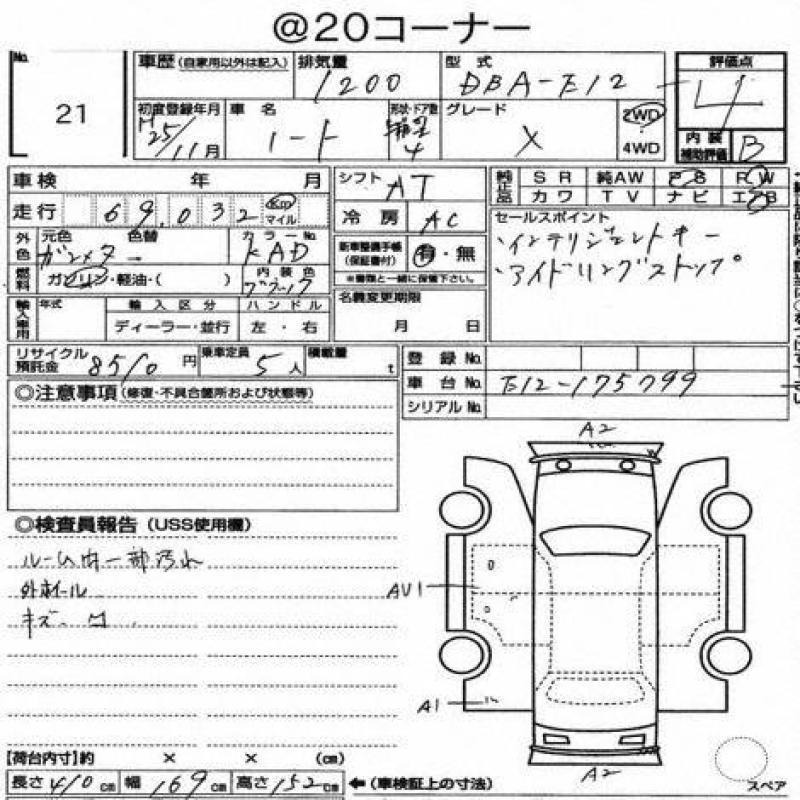 @20コーナー
No. 21
車歴 (自家用以外は記入) 排気量 1200 型式 DBA-E12 評価点 4
初度登録年月 H25/11月 車名 ノート 形状・ドア数 4 グレード X 2WD 4WD 内装補助評価 B
車検 年 月 シフト AT 純正品 SR 純AW PS PW
走行 69,032 Km マイル 冷房 AC カワ TV ナビ エアB
外色 元色 ガンメター 色替 カラーNo. KAD 新車整備手帳(保証書付) 有・無 ※書類と一緒に保管下さい。 セールスポイント
燃料 ガソリン・軽油・( ) 内装色 ブラック ・インテリジェントキー
輸入車用 年式 輸入区分 ハンドル 名義変更期限 ・アイドリングストップ
ディーラー・並行 左・右 月 日
リサイクル預託金 8510円 乗車定員 5人 積載量 t 登録No.
車台No. E12-175099
◎注意事項 (修復・不具合箇所および状態等) シリアルNo.
A2
◎検査員報告 (USS使用欄)
ルーム内一部汚れ
外ホイール
AU1
キズ
A1
【荷台内寸】約 × × (cm)
長さ 410cm 幅 169cm 高さ 152cm ←(車検証上の寸法)
A2
スペア